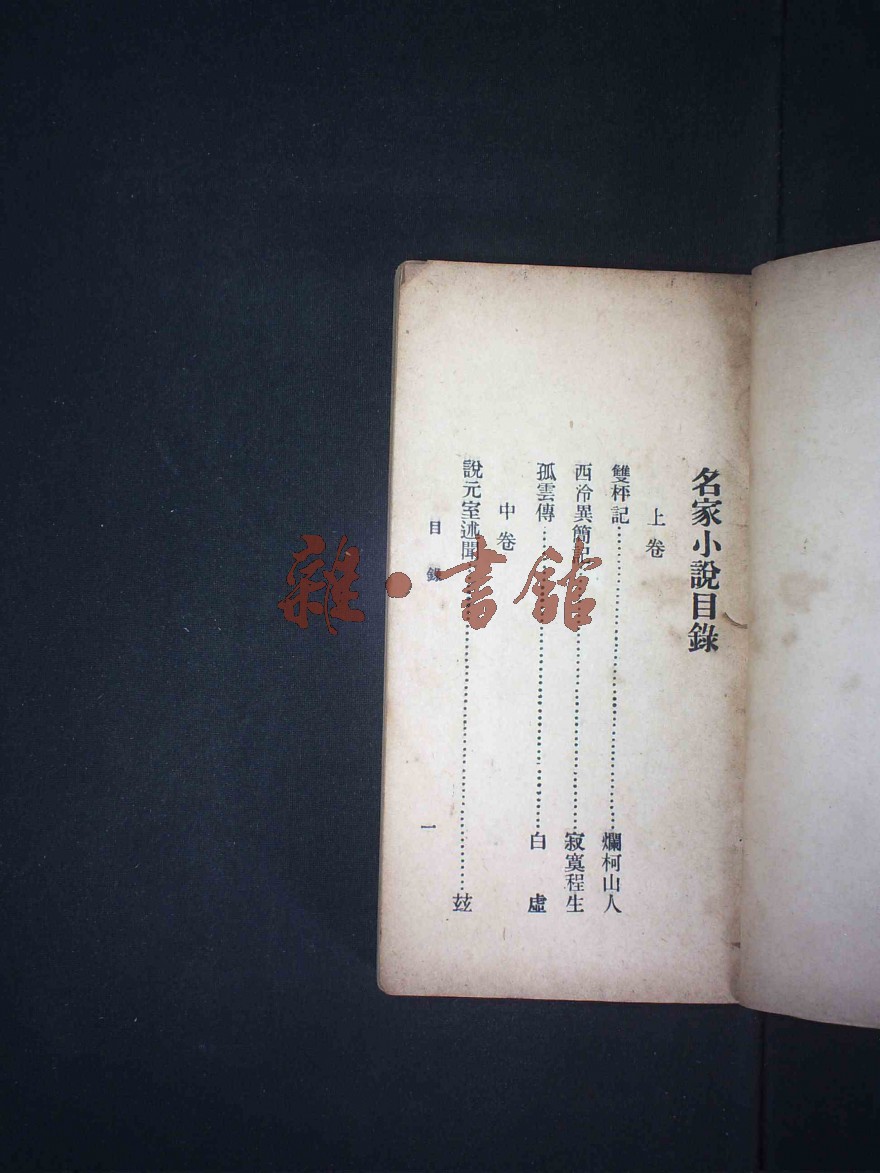 名家小說目錄
上卷
雙枰記…………爛柯山人
西泠異簡記…………寂寞程生
孤雲傳…………白虛
中卷
說元室述聞…………玆
目錄
一
雜·書館